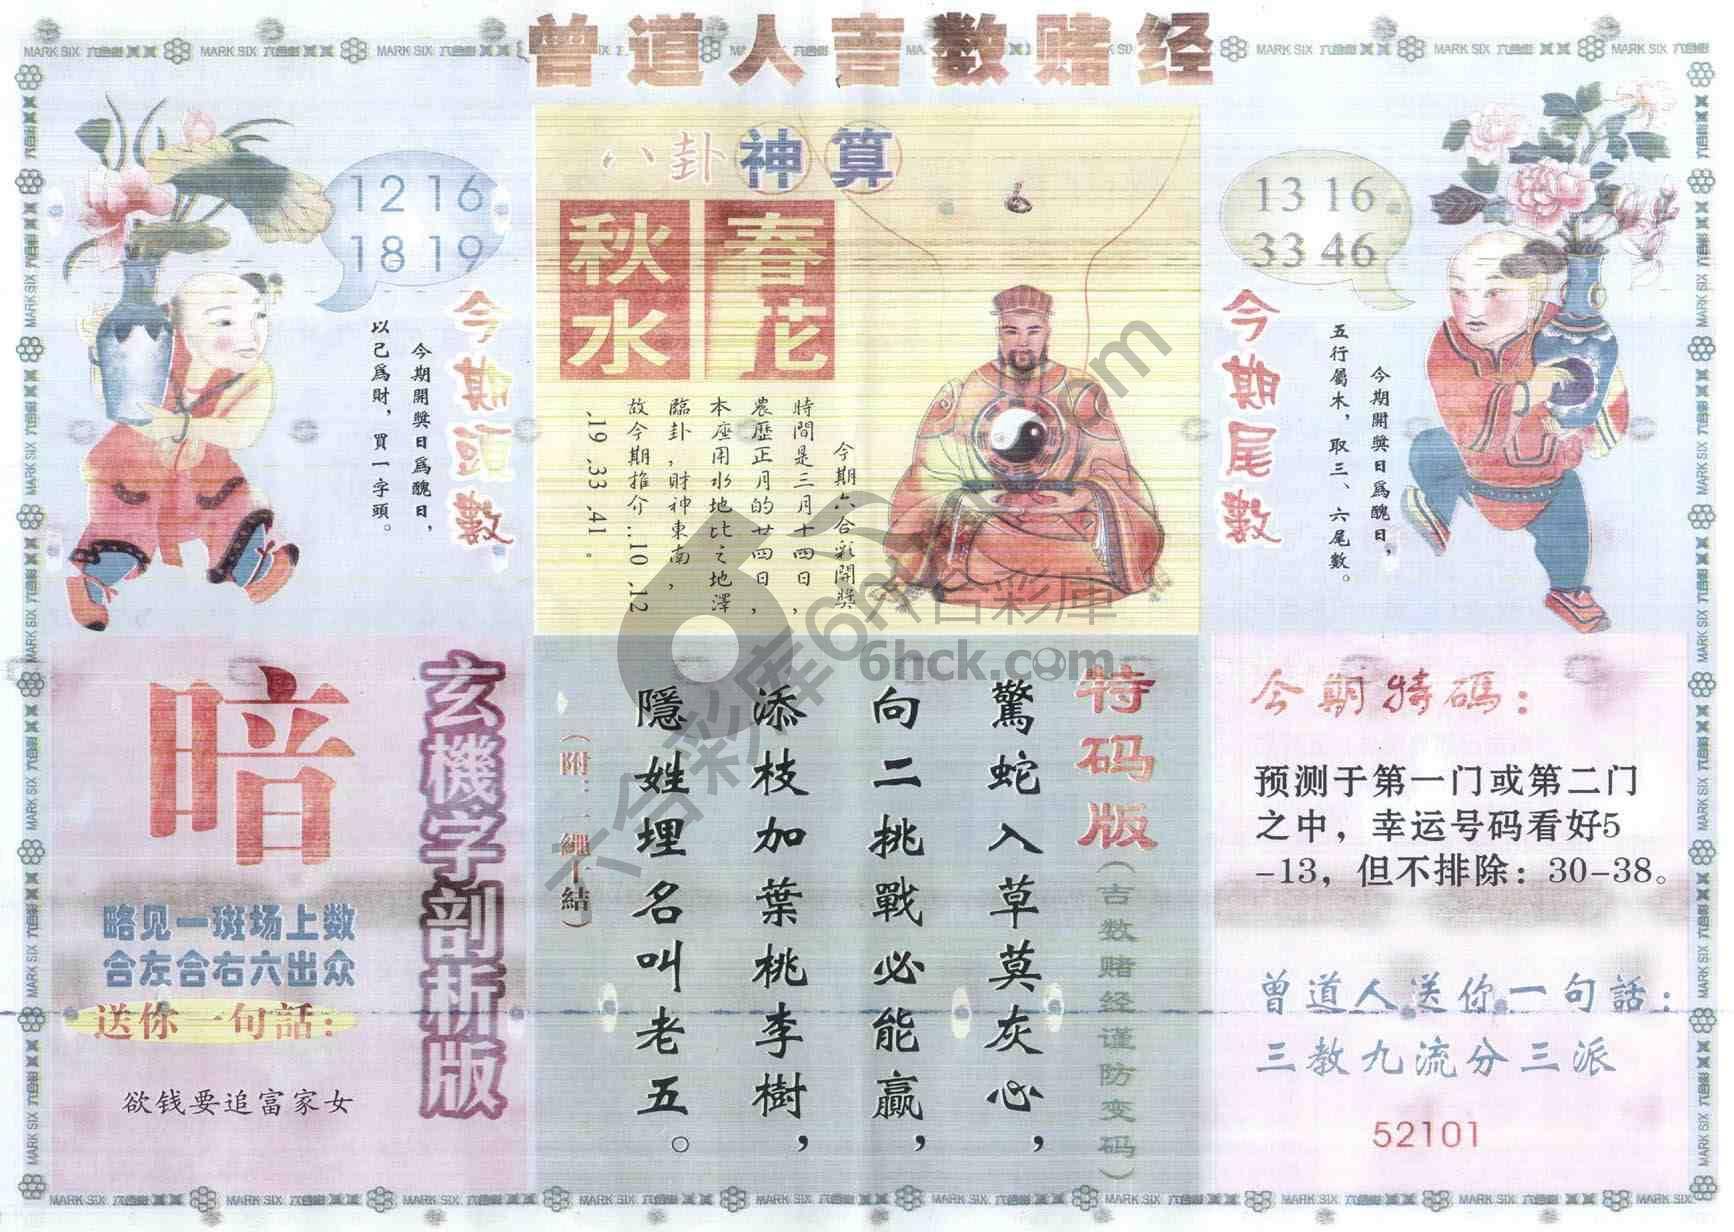 曾道人吉数赌经
12 16
18 19
今期頭數
今期開獎日爲醜日，
以己爲財，買一字頭。
八卦神算
春花
秋水
今期六合彩開獎
時間是三月十四日，
農歷正月的廿四日，
本座用水地比之地澤
臨卦，財神東南，
故今期推介..10 .12
.19 .33 .41 。
13 16
33 46
今期尾數
今期開獎日爲醜日，
五行屬木，取三、六尾數。
玄機字剖析版
暗
略见一斑场上数
合左合右六出众
送你一句話：
欲钱要追富家女
特码版
（吉数赌经谨防变码）
驚蛇入草莫灰心，
向二挑戰必能贏，
添枝加葉桃李樹，
隱姓埋名叫老五。
今期特碼：
预测于第一门或第二门
之中，幸运号码看好5
-13，但不排除：30-38。
曾道人送你一句話：
三教九流分三派
52101
MARK SIX 六合彩
六合彩库
六合彩庫
6hck.com